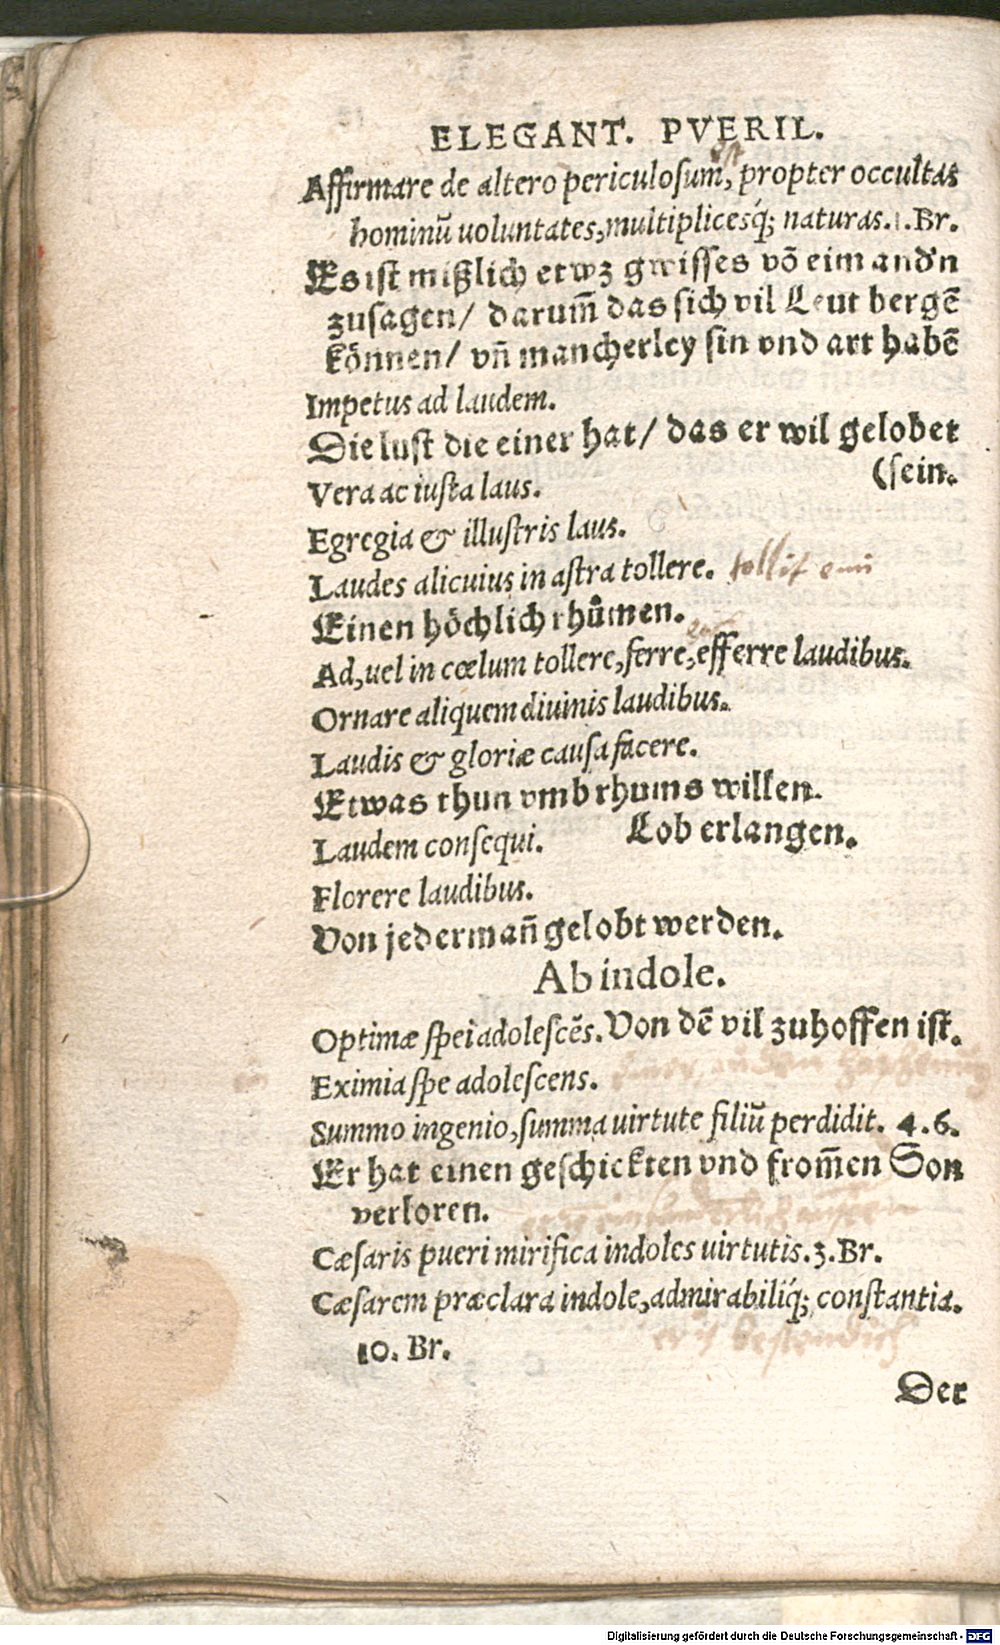 ELEGANT. PVERIL.
est
Affirmare de altero periculosum, propter occultas
hominū uoluntates, multiplicesq́; naturas. 1. Br.
Es ist mißlich etwz gwisses võ eim and'n
zusagen/ darum̃ das sich vil Leut bergẽ
können/ vñ mancherley sin vnd art habẽ
Impetus ad laudem.
Die lust die einer hat/ das er wil gelobet
(sein.
Vera ac iusta laus.
Egregia & illustris laus.
Laudes alicuius in astra tollere. tollit
Einen höchlich rhůmen.
Ad, uel in cœlum tollere, ferre, efferre laudibus.
Ornare aliquem diuinis laudibus.
Laudis & gloriæ causa facere.
Etwas thun vmb rhums willen.
Laudem consequi. Lob erlangen.
Florere laudibus.
Von jederman̄ gelobt werden.
Ab indole.
Optimæ spei adolescẽs. Von dẽ vil zuhoffen ist.
Eximia spe adolescens.
Summo ingenio, summa uirtute filiū perdidit. 4. 6.
Er hat einen geschickten vnd from̃en Son
verloren.
Cæsaris pueri mirifica indoles uirtutis. 3. Br.
Cæsarem præclara indole, admirabiliq́; constantia.
10. Br.
Der
Digitalisierung gefördert durch die Deutsche Forschungsgemeinschaft - DFG